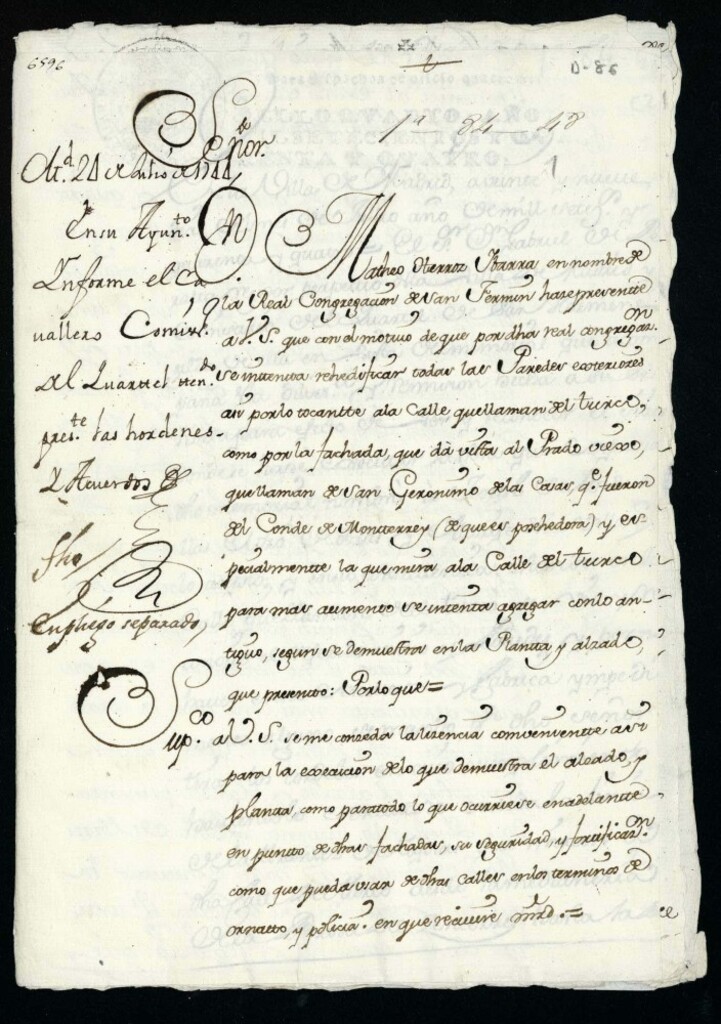 6596
D-86
1ª - 84 - 48
Señor.
Md. 24 de Julio de 1744
En su Ayunto.
Ynforme el Ca
vallero Comisro.
del Quartel ten.do
pres.te las hordenes
Y Acuerdos
fho
en pliego separado,
Matheo Ybarra en nombre de
la Real Congregacion de San Fermin haze presente
a V. S. que con el motivo de que por dha real congregaon.
se intenta rehedificar todas las Paredes exteriores
asi por lo tocantte ala Calle que llaman del turco,
como por la fachada, que dà vista al Prado viexo,
que llaman de San Geronimo delas Casas, q.e fueron
del Conde de Montterrey (de que es poshedora) y es-
pecialmentte la que mira ala Calle del turco
para mas aumento se intenta agregar con lo an-
tiguo, segun se demuestra en la Planta y alzado,
que presentto: Por lo que=
Sup.co a V. S. se me conceda la lisencia combenientte asi
para la execucion delo que demuestra el alcado, y
planta, como para todo lo que ocurriese en adelantte
en puntto de dhas fachadas, su seguridad, y fortificaon.
como que pueda usar de dhas Calles en los terminos de
ornatto, y policia. en que recivire mrd.=